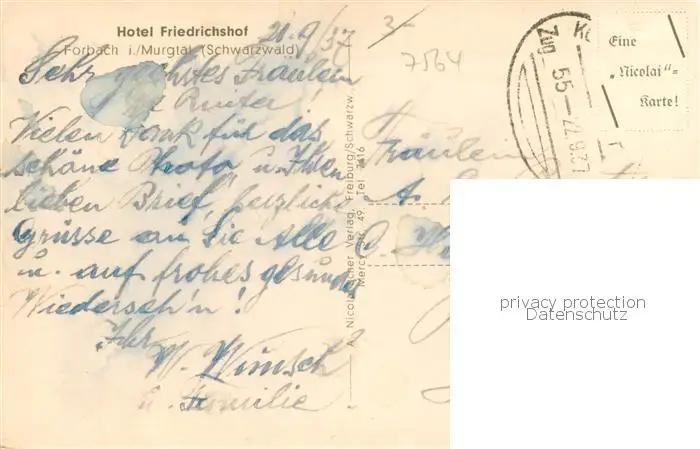 Hotel Friedrichshof
Forbach i./Murgtal (Schwarzwald)
21.9/37
3-
7564
Zug 55 - 22.9.37
Eine
„Nicolai"=
Karte!
Sehr geehrtes Fräulein
Vielen Dank für das
schöne Photo u. Ihren
lieben Brief, herzliche
Grüsse an Sie Alle
u. auf frohes gesundes
Wiederseh'n!
Ihr
W. Wünsch
u. Familie
Fräulein
A.
A. Nicolai'scher Verlag, Freiburg/Schwarzw.
Mercystr. 49, Tel. 7416
privacy protection
Datenschutz